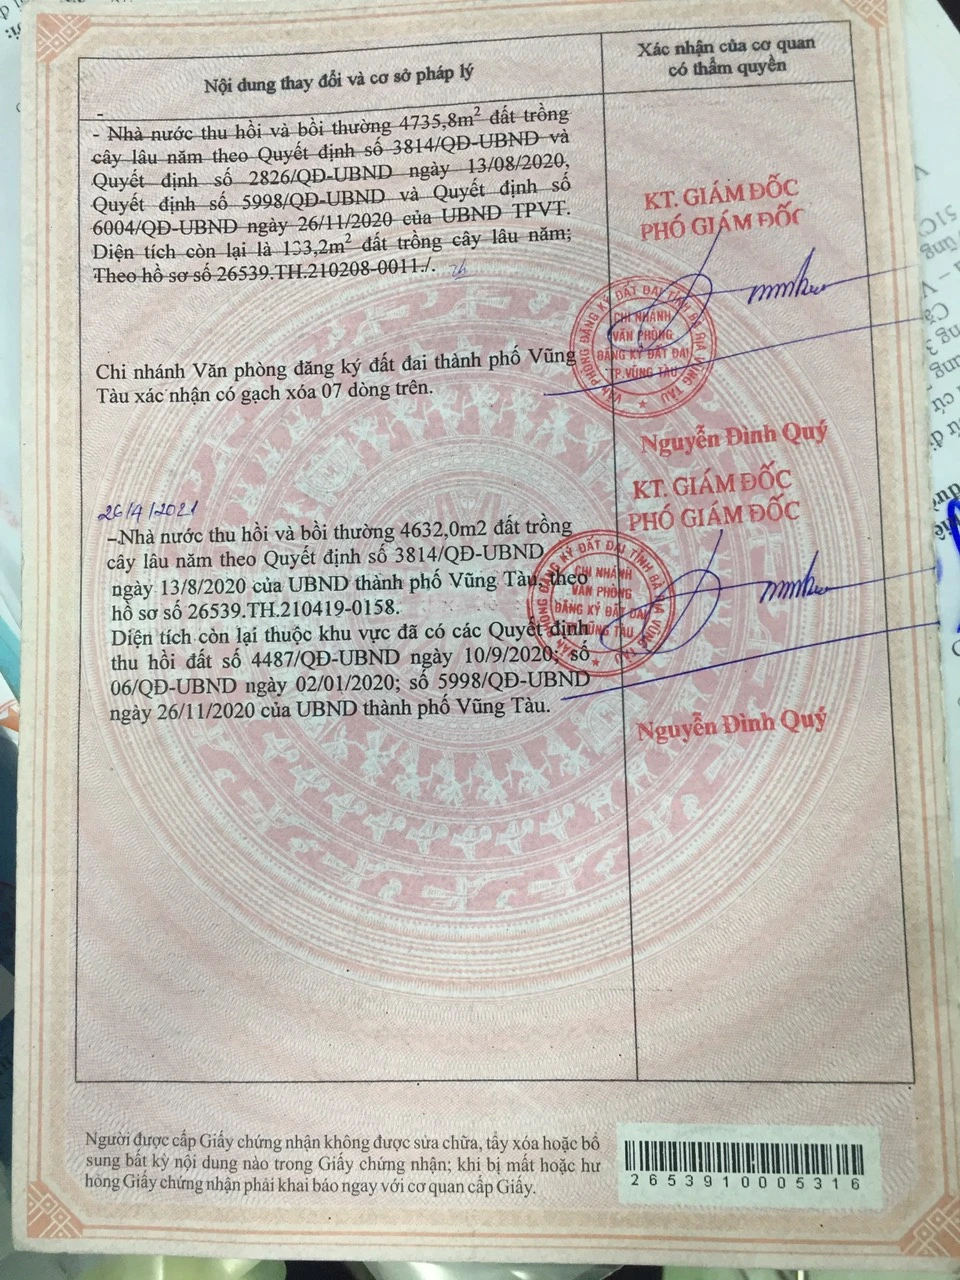 Nội dung thay đổi và cơ sở pháp lý
Xác nhận của cơ quan
có thẩm quyền
- Nhà nước thu hồi và bồi thường 4735,8m² đất trồng
cây lâu năm theo Quyết định số 3814/QĐ-UBND và
Quyết định số 2826/QĐ-UBND ngày 13/08/2020,
Quyết định số 5998/QĐ-UBND và Quyết định số
6004/QĐ-UBND ngày 26/11/2020 của UBND TPVT.
Diện tích còn lại là 133,2m² đất trồng cây lâu năm;
Theo hồ sơ số 26539.TH.210208-0011./.
KT. GIÁM ĐỐC
PHÓ GIÁM ĐỐC
VĂN PHÒNG ĐĂNG KÝ ĐẤT ĐAI TỈNH BÀ RỊA VŨNG TÀU
CHI NHÁNH
VĂN PHÒNG
ĐĂNG KÝ ĐẤT ĐAI
TP.VŨNG TÀU
Chi nhánh Văn phòng đăng ký đất đai thành phố Vũng
Tàu xác nhận có gạch xóa 07 dòng trên.
Nguyễn Đình Quý
26/4/2021
-Nhà nước thu hồi và bồi thường 4632,0m2 đất trồng
cây lâu năm theo Quyết định số 3814/QĐ-UBND
ngày 13/8/2020 của UBND thành phố Vũng Tàu, theo
hồ sơ số 26539.TH.210419-0158.
Diện tích còn lại thuộc khu vực đã có các Quyết định
thu hồi đất số 4487/QĐ-UBND ngày 10/9/2020; số
06/QĐ-UBND ngày 02/01/2020; số 5998/QĐ-UBND
ngày 26/11/2020 của UBND thành phố Vũng Tàu.
KT. GIÁM ĐỐC
PHÓ GIÁM ĐỐC
VĂN PHÒNG ĐĂNG KÝ ĐẤT ĐAI TỈNH BÀ RỊA VŨNG TÀU
CHI NHÁNH
VĂN PHÒNG
ĐĂNG KÝ ĐẤT ĐAI
VŨNG TÀU
Nguyễn Đình Quý
Người được cấp Giấy chứng nhận không được sửa chữa, tẩy xóa hoặc bổ
sung bất kỳ nội dung nào trong Giấy chứng nhận; khi bị mất hoặc hư
hỏng Giấy chứng nhận phải khai báo ngay với cơ quan cấp Giấy.
2653910005316